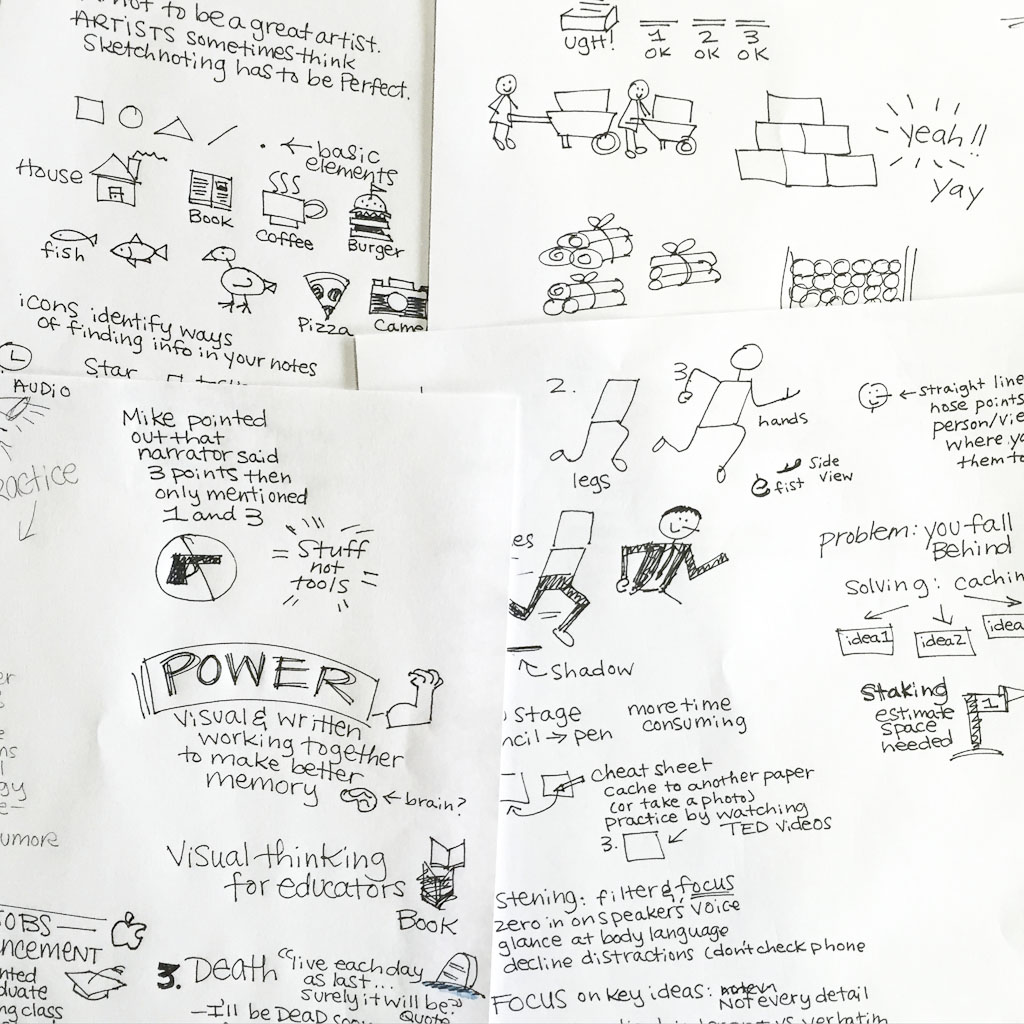 not to be a great artist.
ARTISTS sometimes think
Sketchnoting has to be Perfect.
← basic
elements
House
Book
Coffee
Burger
fish
Pizza
Came
icons identify ways
of finding info in your notes
Star
AUDIO
UGH!
1 2 3
OK OK OK
yeah!!
yay
Mike pointed
out that
narrator said
3 points then
only mentioned
1 and 3
ractice
= Stuff
not
tools
POWER
visual & written
working together
to make better
memory
← brain?
umore
Visual thinking
for educators
Book
JOBS
ncement
duate
ng class
3. Death "live each day
as last...
surely it will be"
Quote
2.
legs
3
hands
fist
Side
view
← straight line
nose points
person/vie
where yo
them to
es
Shadow
problem: you fall
Behind
Solving: cachin
idea1
idea2
idea
Staking
estimate
space
needed
1
stage
ncil → pen
more time
consuming
cheat sheet
cache to another paper
(or take a photo)
practice by watching
TED videos
3.
stening: filter & focus
zero in on speaker's voice
glance at body language
decline distractions (don't check phone
FOCUS on key ideas:
Not every detail
vs verbatim